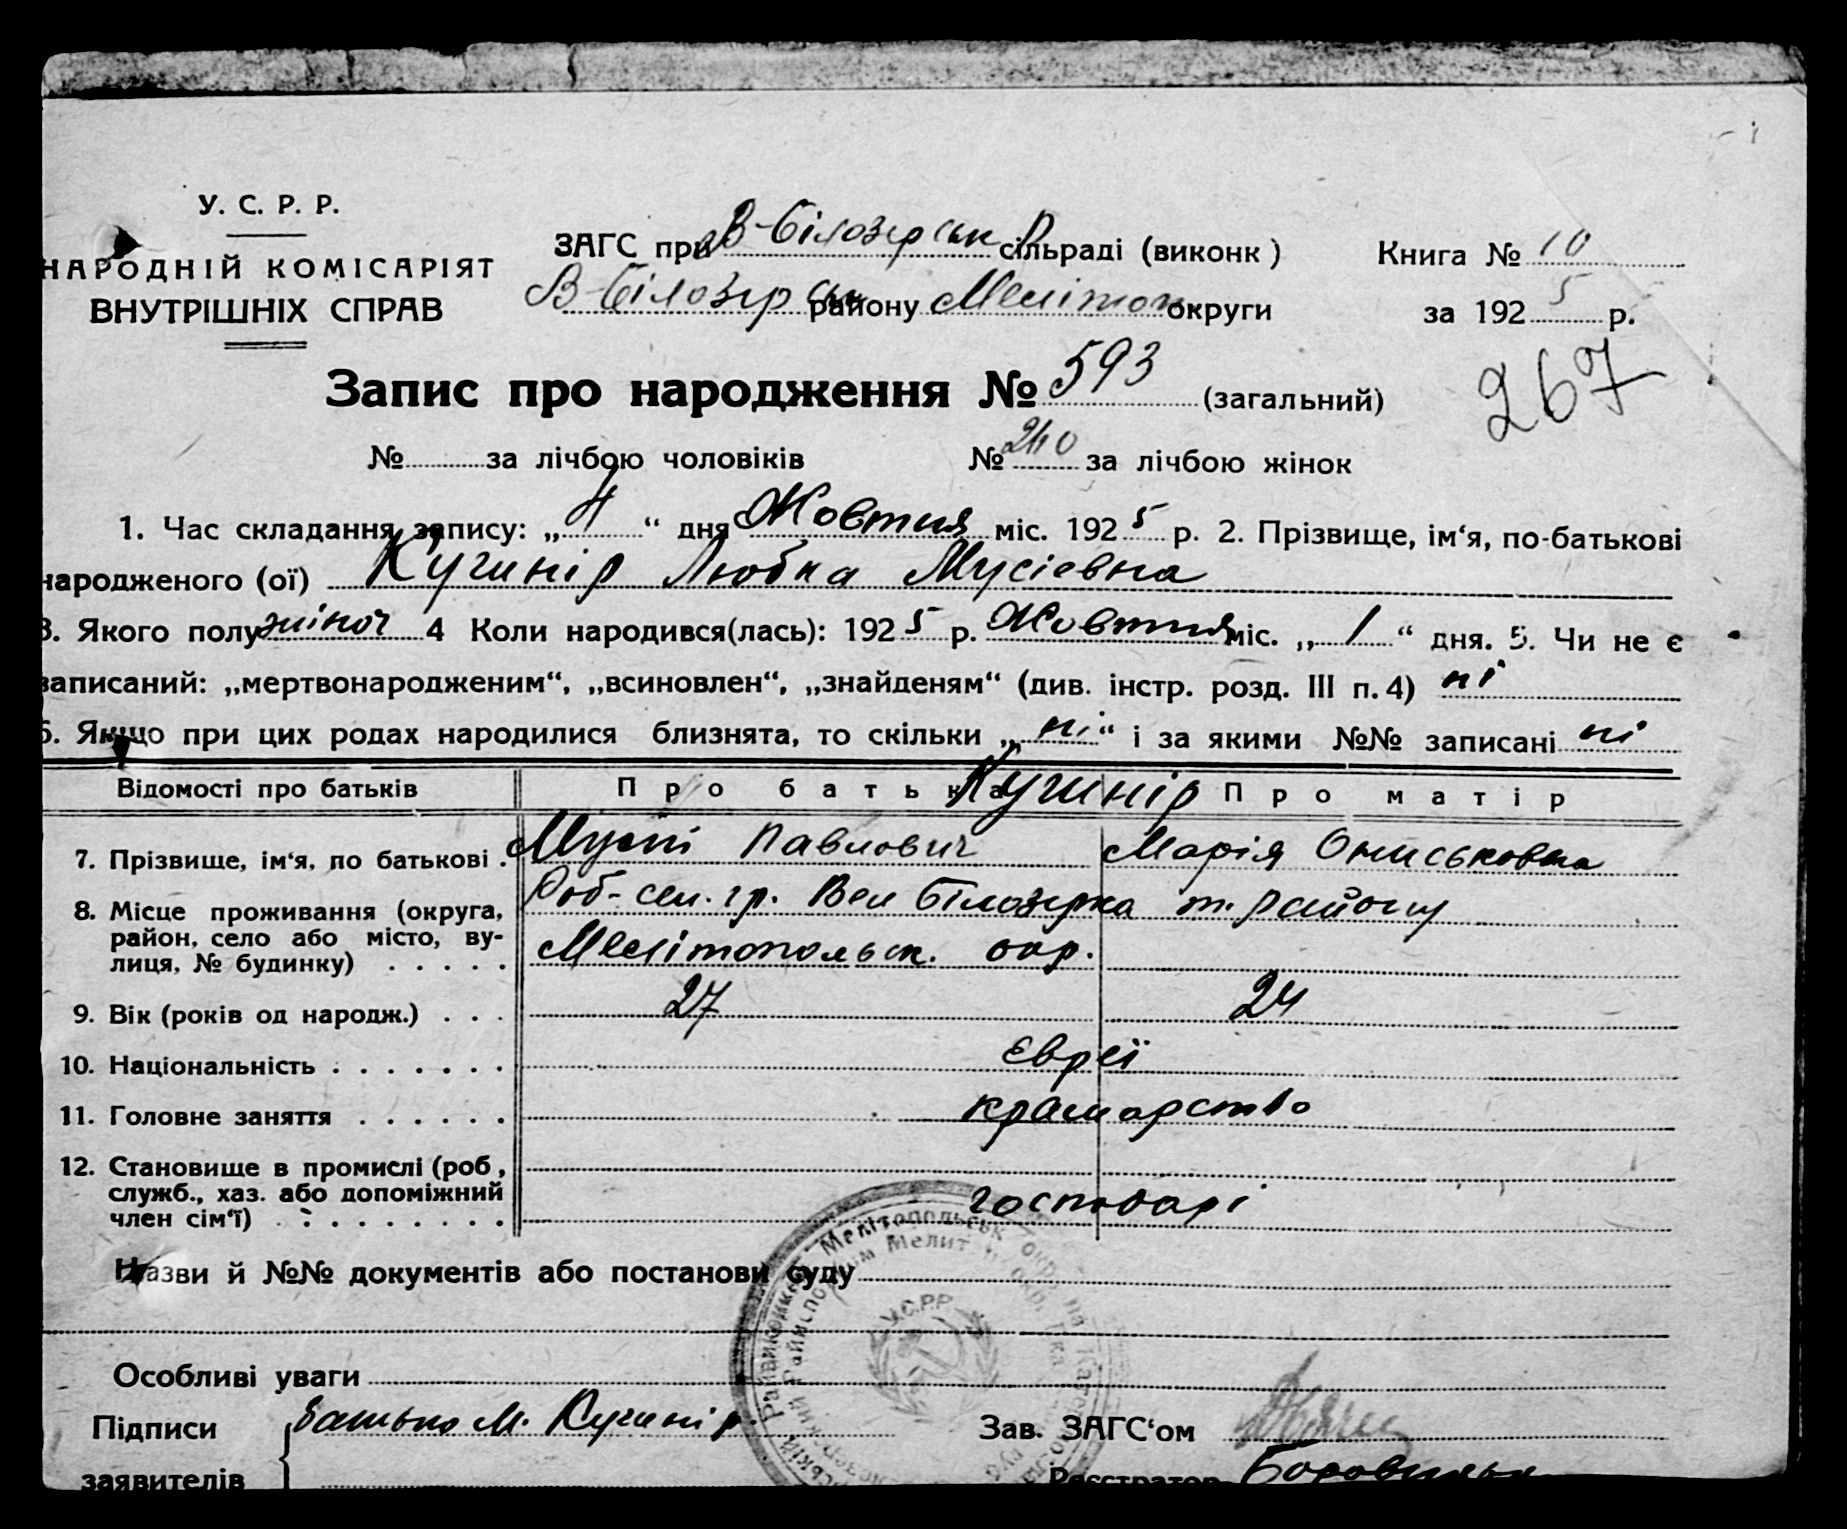 У. С. Р. Р.
НАРОДНІЙ КОМІСАРІЯТ
ВНУТРІШНІХ СПРАВ
ЗАГС при В-Білозірськ р сільраді (виконк)
В-Білозірськ району Мелітоп округи
Книга № 10
за 1925 р.
267
Запис про народження № 593 (загальний)
№ за лічбою чоловіків № 240 за лічбою жінок
1. Час складання запису: „4“ дня Жовтня міс. 1925 р. 2. Прізвище, ім‘я, по-батькові
народженого (ої) Кугинір Любка Мусіевна
3. Якого полу жіноч 4 Коли народився(лась): 1925 р. Жовтня міс. „1“ дня. 5. Чи не є
записаний: „мертвонародженим“, „всиновлен“, „знайденям“ (див. інстр. розд. III п. 4) ні
6. Якщо при цих родах народилися близнята, то скільки „ні“ і за якими №№ записані ні
Відомості про батьків Про батька Про матір
Кугинір
7. Прізвище, ім‘я, по батькові . Мусій Павлович Марія Ониськовна
8. Місце проживання (округа, район, село або місто, вулиця, № будинку) . . . . .
Роб-сел. гр. Вел Білозірка т. району
Мелітопольськ. окр.
9. Вік (років од народж.) . . . 27 24
10. Національність . . . . . . . Євреї
11. Головне заняття . . . . . . крамарство
12. Становище в промислі (роб,
служб., хаз. або допоміжний
член сім‘ї) . . . . . . . . господарі
Назви й №№ документів або постанови суду
У.С.Р.Р.
Особливі уваги
Підписи
заявителів
батько М. Кугинір.
Зав. ЗАГС‘ом
Реєстратор